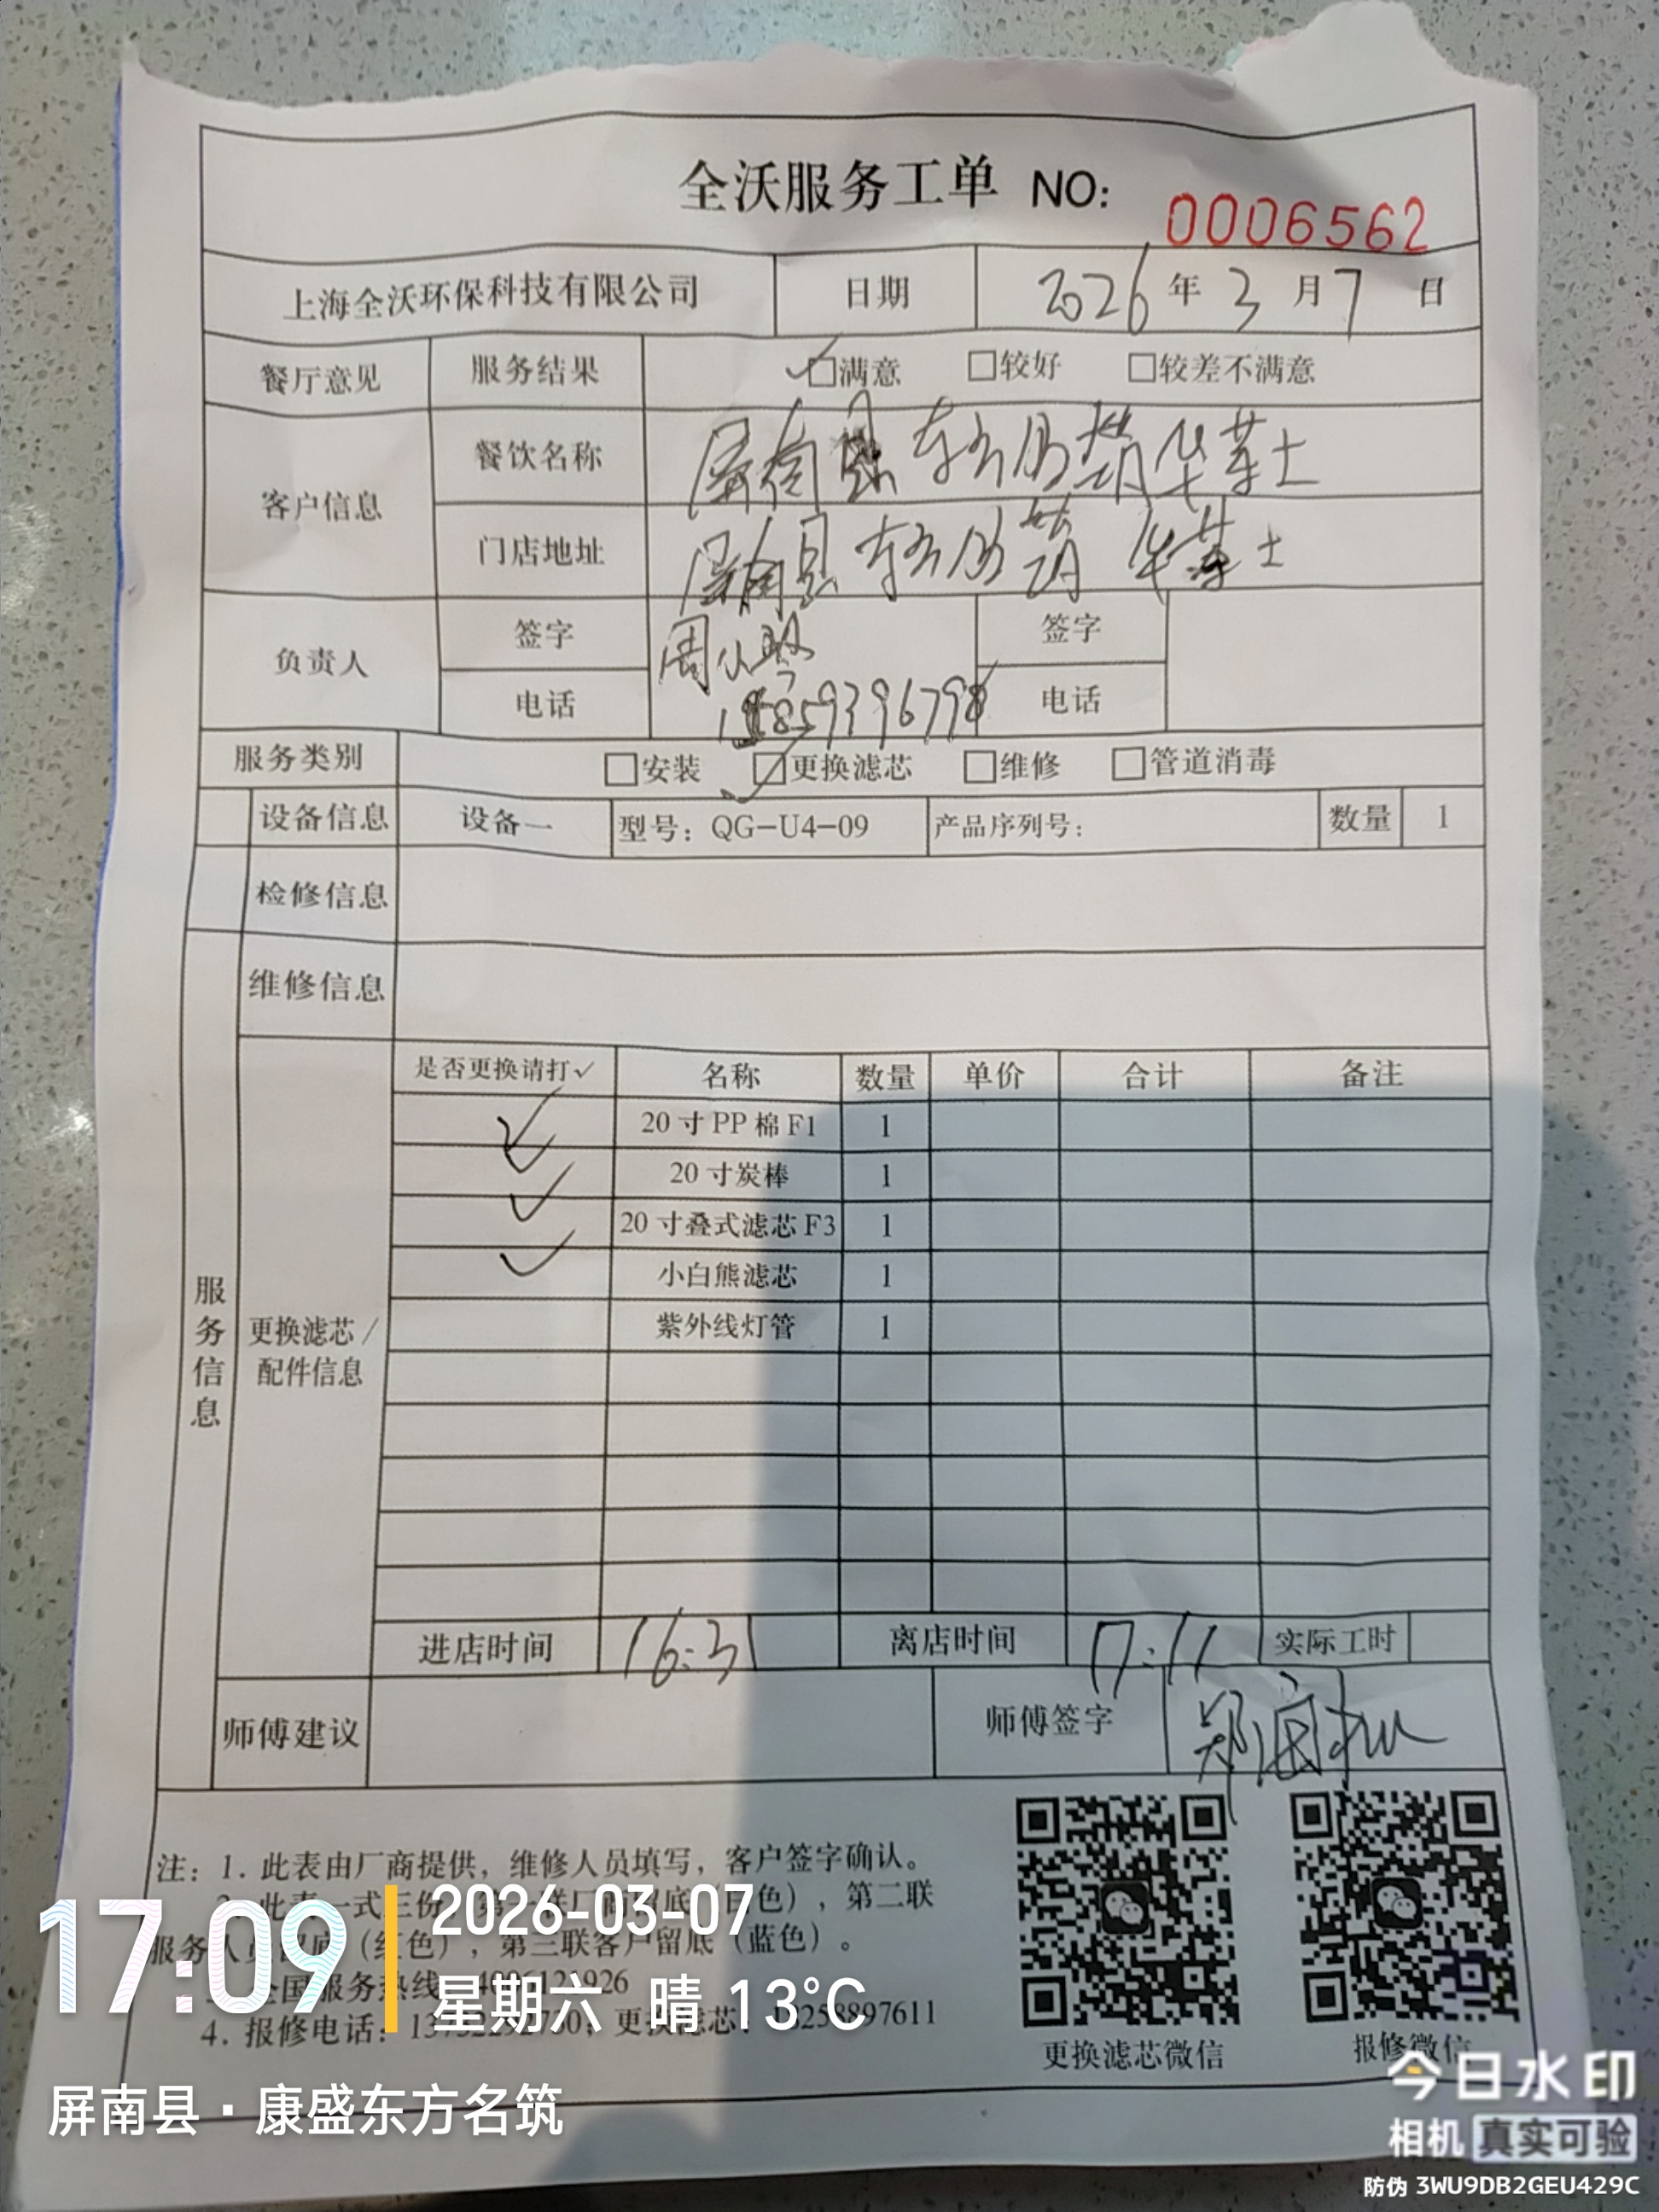 全沃服务工单 NO: 0006562
上海全沃环保科技有限公司 日期 2026年3月7日
餐厅意见 服务结果 ☑满意 □较好 □较差不满意
客户信息 餐饮名称 屏南县 华莱士
门店地址 屏南县 华莱士
负责人 签字 周 签字
电话 电话
服务类别 □安装 ☑更换滤芯 □维修 □管道消毒
设备信息 设备一 型号: QG-U4-09 产品序列号: 数量 1
检修信息
维修信息
服务信息
更换滤芯/配件信息
是否更换请打✓ 名称 数量 单价 合计 备注
✓ 20寸PP棉F1 1
✓ 20寸炭棒 1
✓ 20寸叠式滤芯F3 1
✓ 小白熊滤芯 1
紫外线灯管 1
进店时间 16:31 离店时间 17:11 实际工时
师傅建议 师傅签字 郑
注: 1. 此表由厂商提供, 维修人员填写, 客户签字确认。
此表一式三份 (白色), 第二联
服务人员留底 (红色), 第三联客户留底 (蓝色)。
全国服务热线
4. 报修电话: 更换滤芯: 18258897611
更换滤芯微信 报修微信
17:09 2026-03-07
星期六 晴 13°C
屏南县·康盛东方名筑
今日水印
相机 真实可验
防伪 3WU9DB2GEU429C